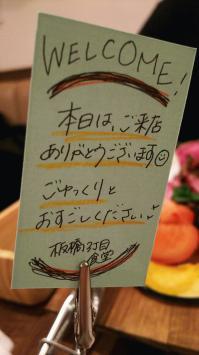 WELCOME!
本日は、ご来店
ありがとうございます☺
ごゆっくりと
おすごしくださいませ
板橋3丁目
食堂